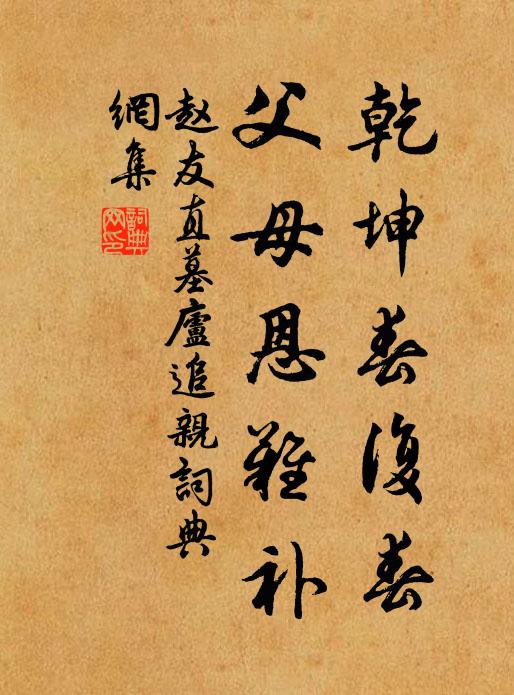 乾坤春復春
父母恩難补
赵友直墓廬追親詞典
網集
詞典
网印